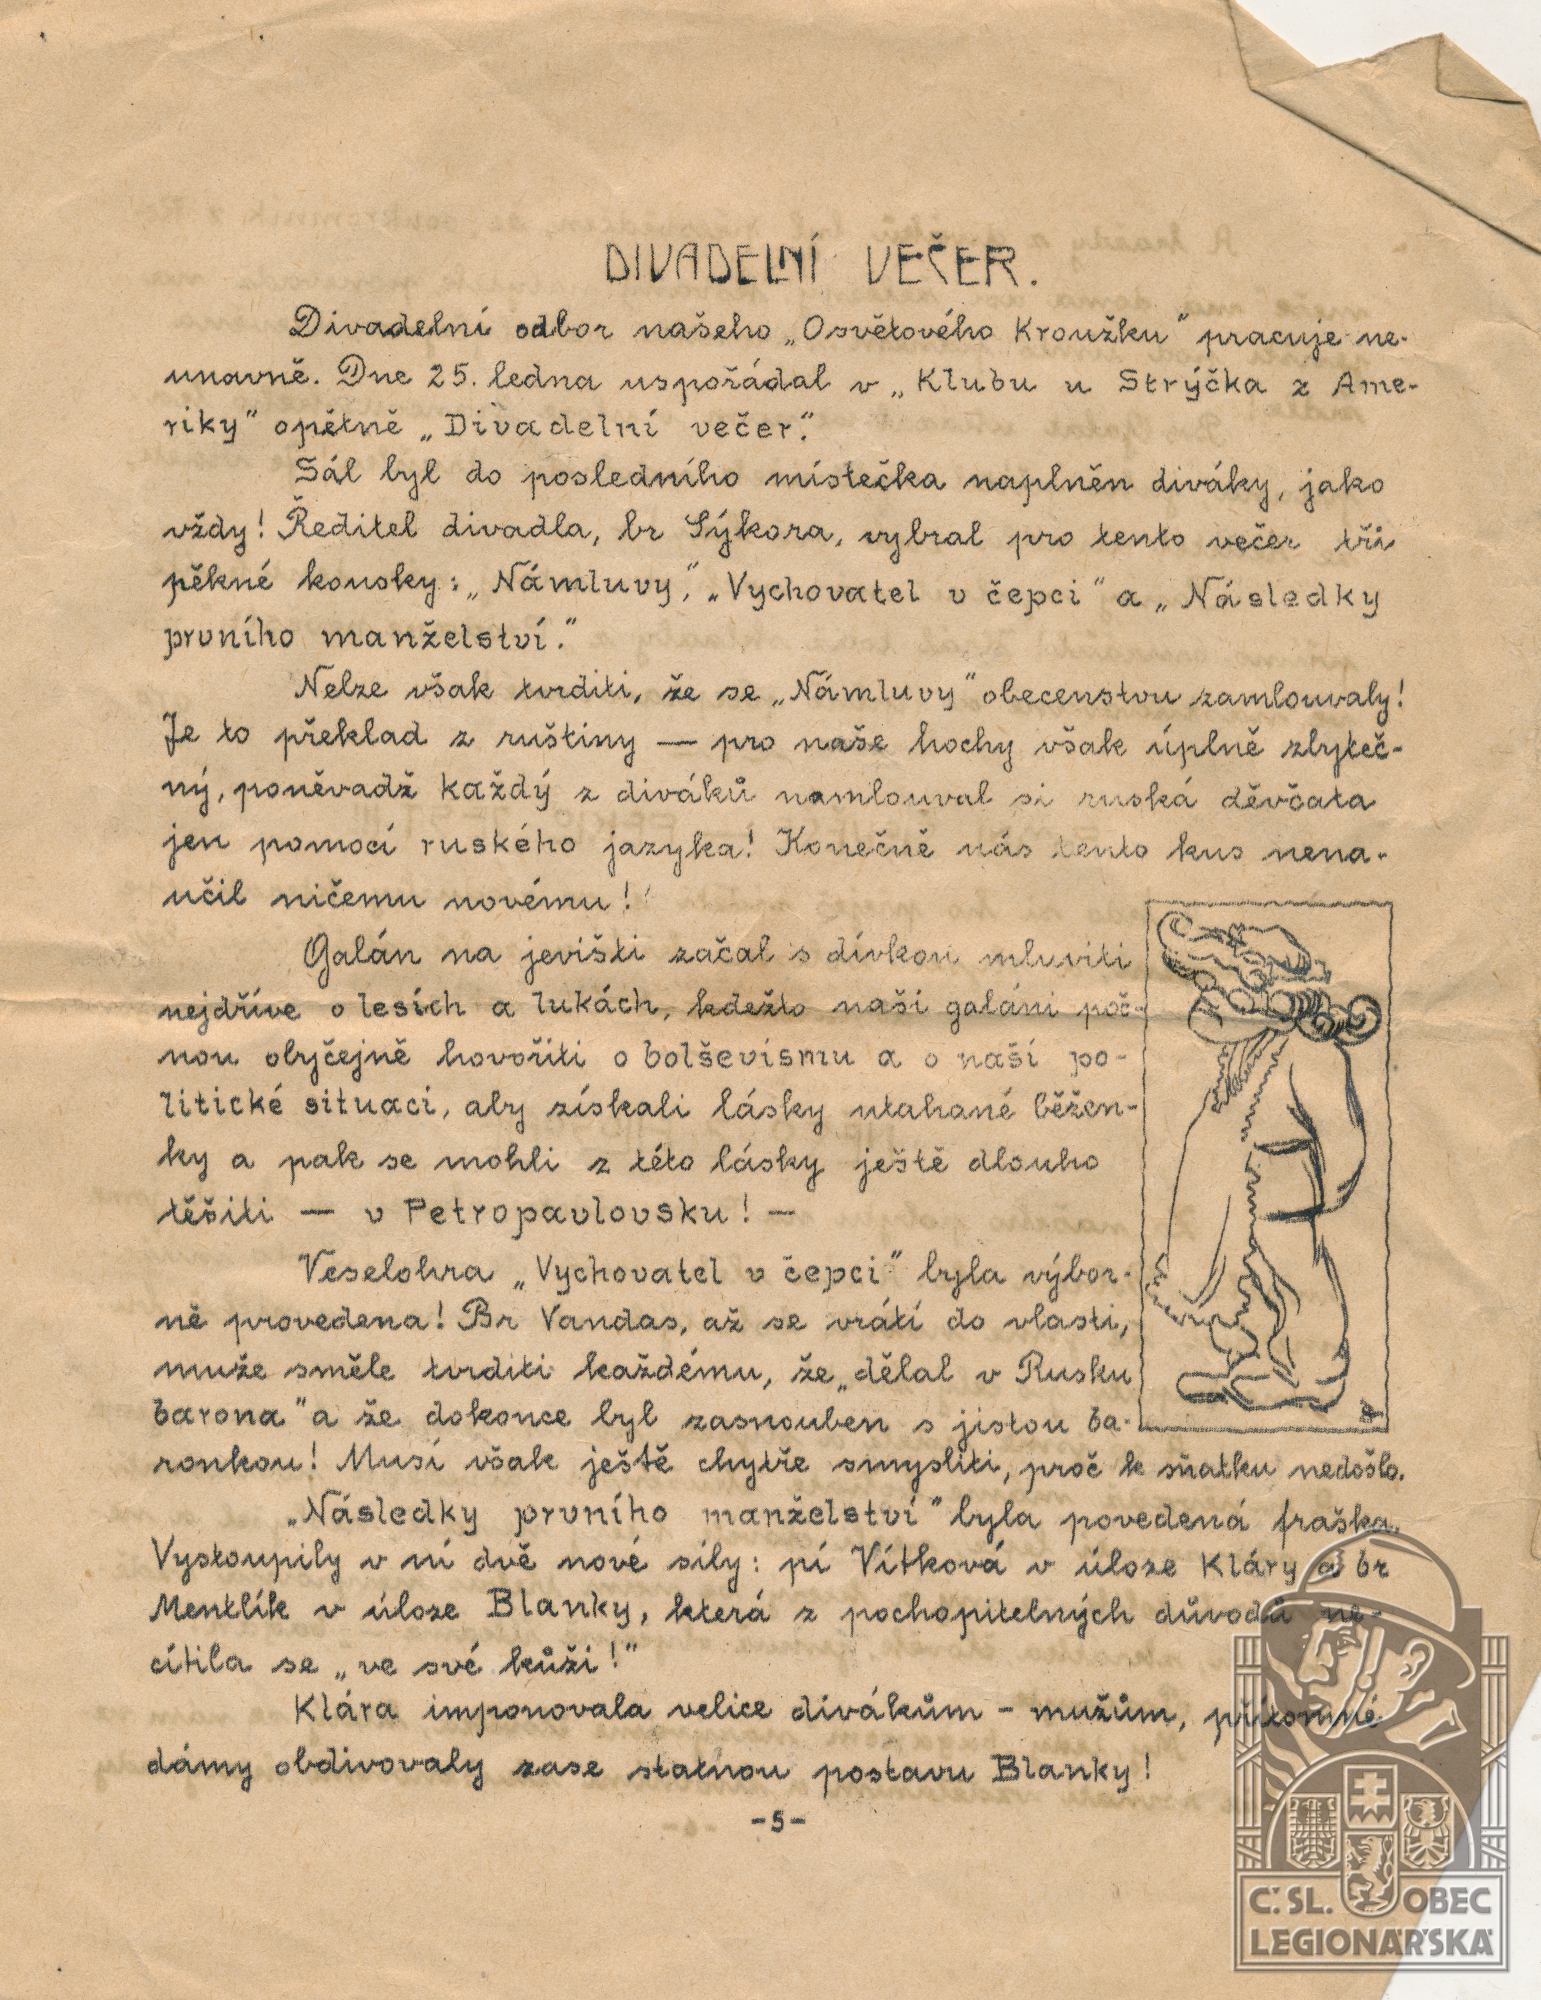 DIVADELNÍ VEČER.
Divadelní odbor našeho „Osvětového Kroužku" pracuje ne-
unavně. Dne 25. ledna uspořádal v „Klubu u Strýčka z Ame-
riky" opětně „Divadelní večer."
Sál byl do posledního místečka naplněn diváky, jako
vždy! Ředitel divadla, br Sýkora, vybral pro tento večer tři
pěkné kousky: „Námluvy", „Vychovatel v čepci" a „Následky
prvního manželství."
Nelze však tvrditi, že se „Námluvy" obecenstvu zamlouvaly!
Je to překlad z ruštiny — pro naše hochy však úplně zbyteč-
ný, poněvadž každý z diváků namlouval si ruská děvčata
jen pomocí ruského jazyka! Konečně nás tento kus nena-
učil ničemu novému!
Galán na jevišti začal s dívkou mluviti
nejdříve o lesích a lukách, kdežto naši galáni poč-
nou obyčejně hovořiti o bolševismu a o naší po-
litické situaci, aby získali lásky utahané běžen-
ky a pak se mohli z této lásky ještě dlouho
těšiti — v Petropavlovsku! —
Veselohra „Vychovatel v čepci" byla výbor-
ně provedena! Br Vandas, až se vrátí do vlasti,
muže směle tvrditi každému, že „dělal v Rusku
barona" a že dokonce byl zasnouben s jistou ba-
ronkou! Musí však ještě chytře smysliti, proč k sňatku nedošlo.
„Následky prvního manželství" byla povedená fraška.
Vystoupily v ní dvě nové síly: pí Vítková v úloze Kláry a br
Mentlík v úloze Blanky, která z pochopitelných důvodů ne-
cítila se „ve své kůži!"
Klára imponovala velice divákům - mužům, přítomné
dámy obdivovaly zase statnou postavu Blanky!
-5-
Č.SL. OBEC
LEGIONÁŘSKÁ